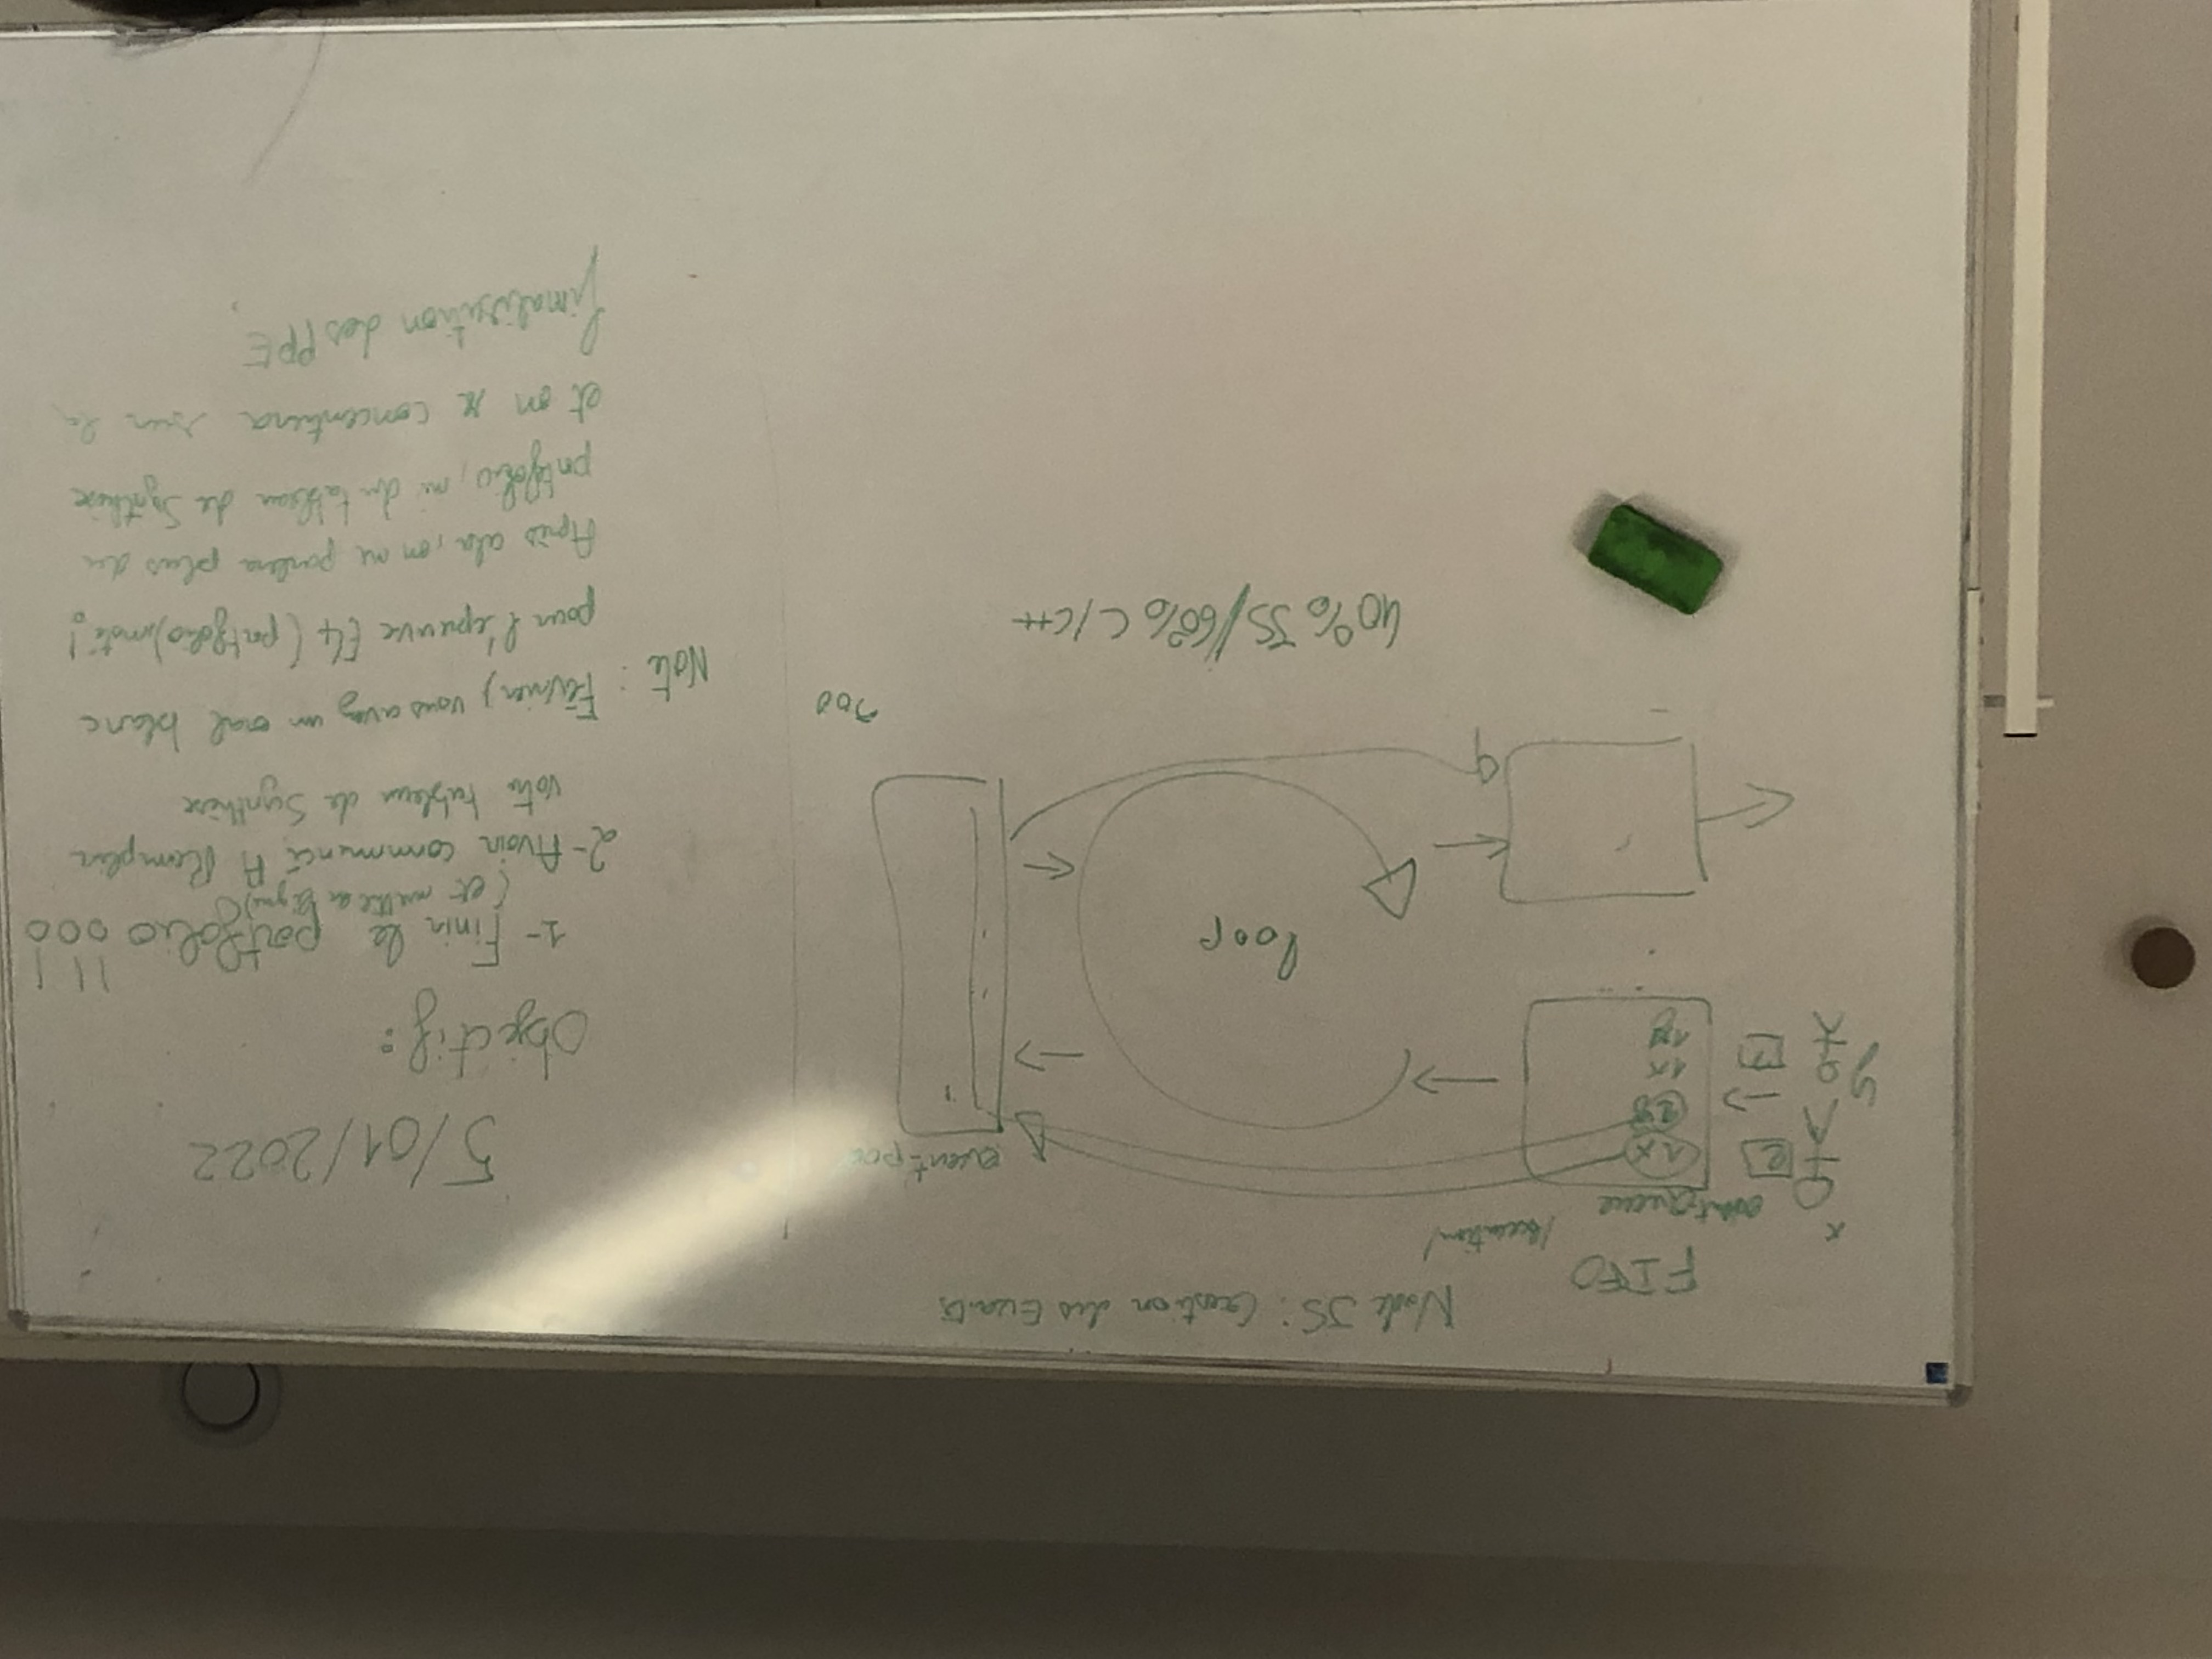 Node JS : Gestion des Events
FIFO
/execution/
x
event queue
e
1x
2y
y
1x
1y
loop
event poo
40% JS//60% C/C++
5/01/2022
Objectif :
1- Finir le portfolio !!!
(et mettre en ligne)
2- Avoir commencé A Remplir
votre tableau de Synthèse
Note : Février, vous avez un oral blanc
pour l'épreuve E4 (portfolio) noté !
Après cela, on ne parlera plus du
portfolio, ni du tableau de Synthèse
et on se concentrera sur la
finalisation des PPE